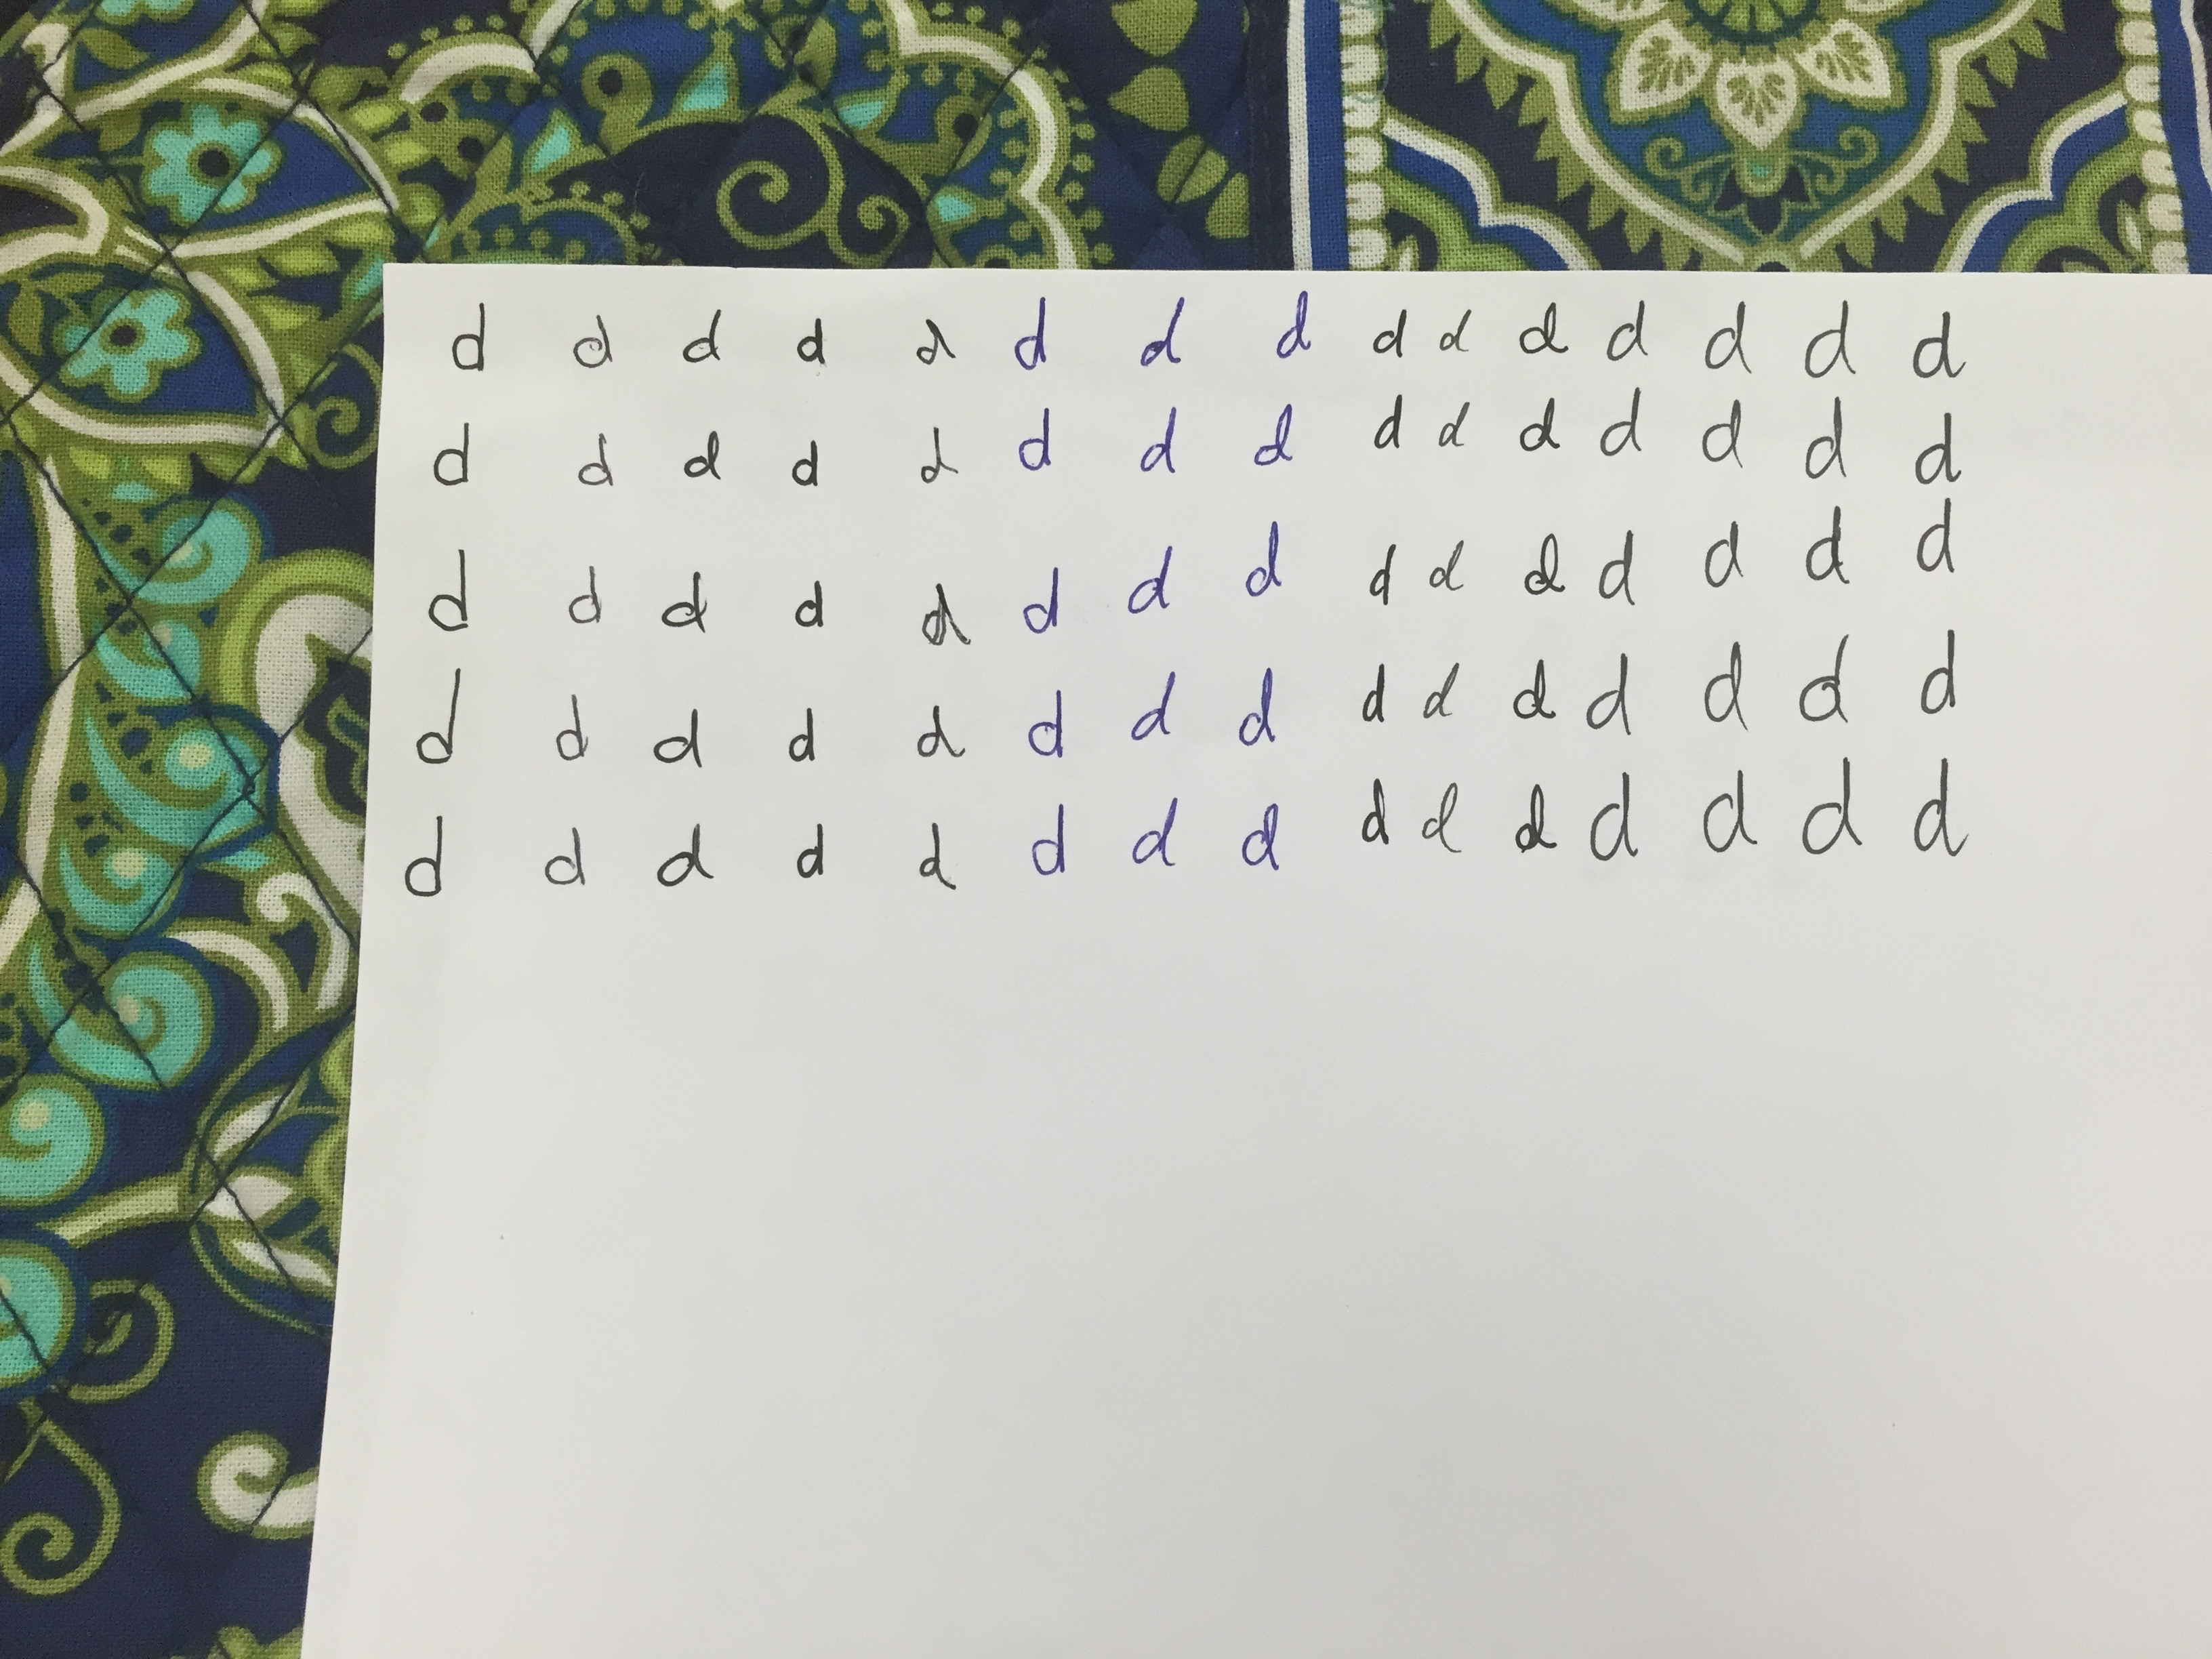 d d d d d d d d d d d d d d d
d d d d d d d d d d d d d d d
d d d d d d d d d d d d d d d
d d d d d d d d d d d d d d d
d d d d d d d d d d d d d d d